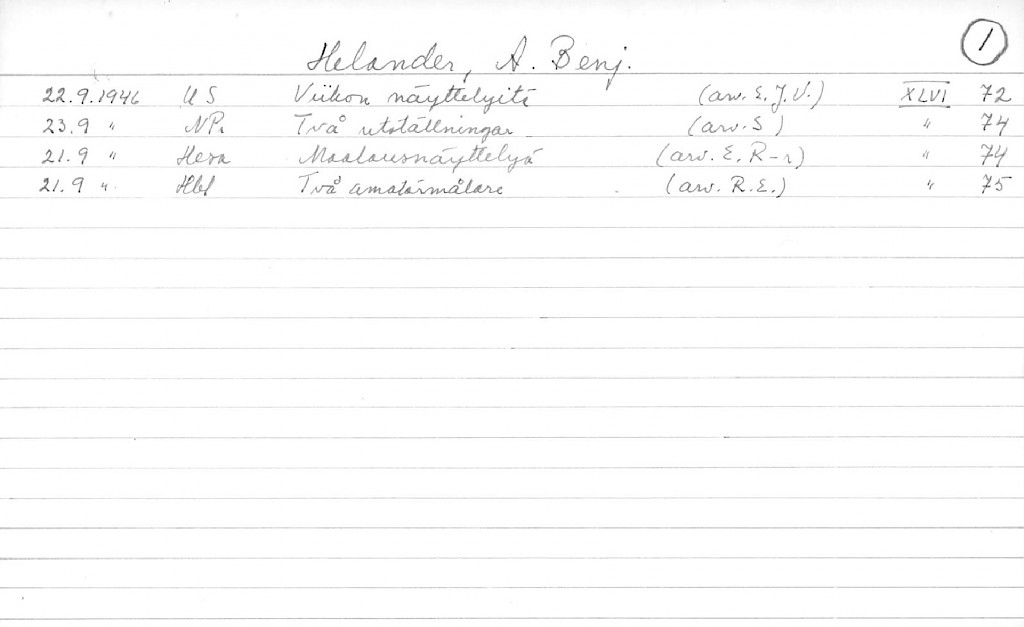 1
Helander, A. Benj.
22.9.1946 US Viikon näyttelyitä (arv. E.J.V.) XLVI 72
23.9 " NPr Två utställningar (arv. S) " 74
21.9 " Hesa Maalausnäyttelyjä (arv. E. R-r) " 74
21.9 " Hbl Två amatörmålare (arv. R.E.) " 75